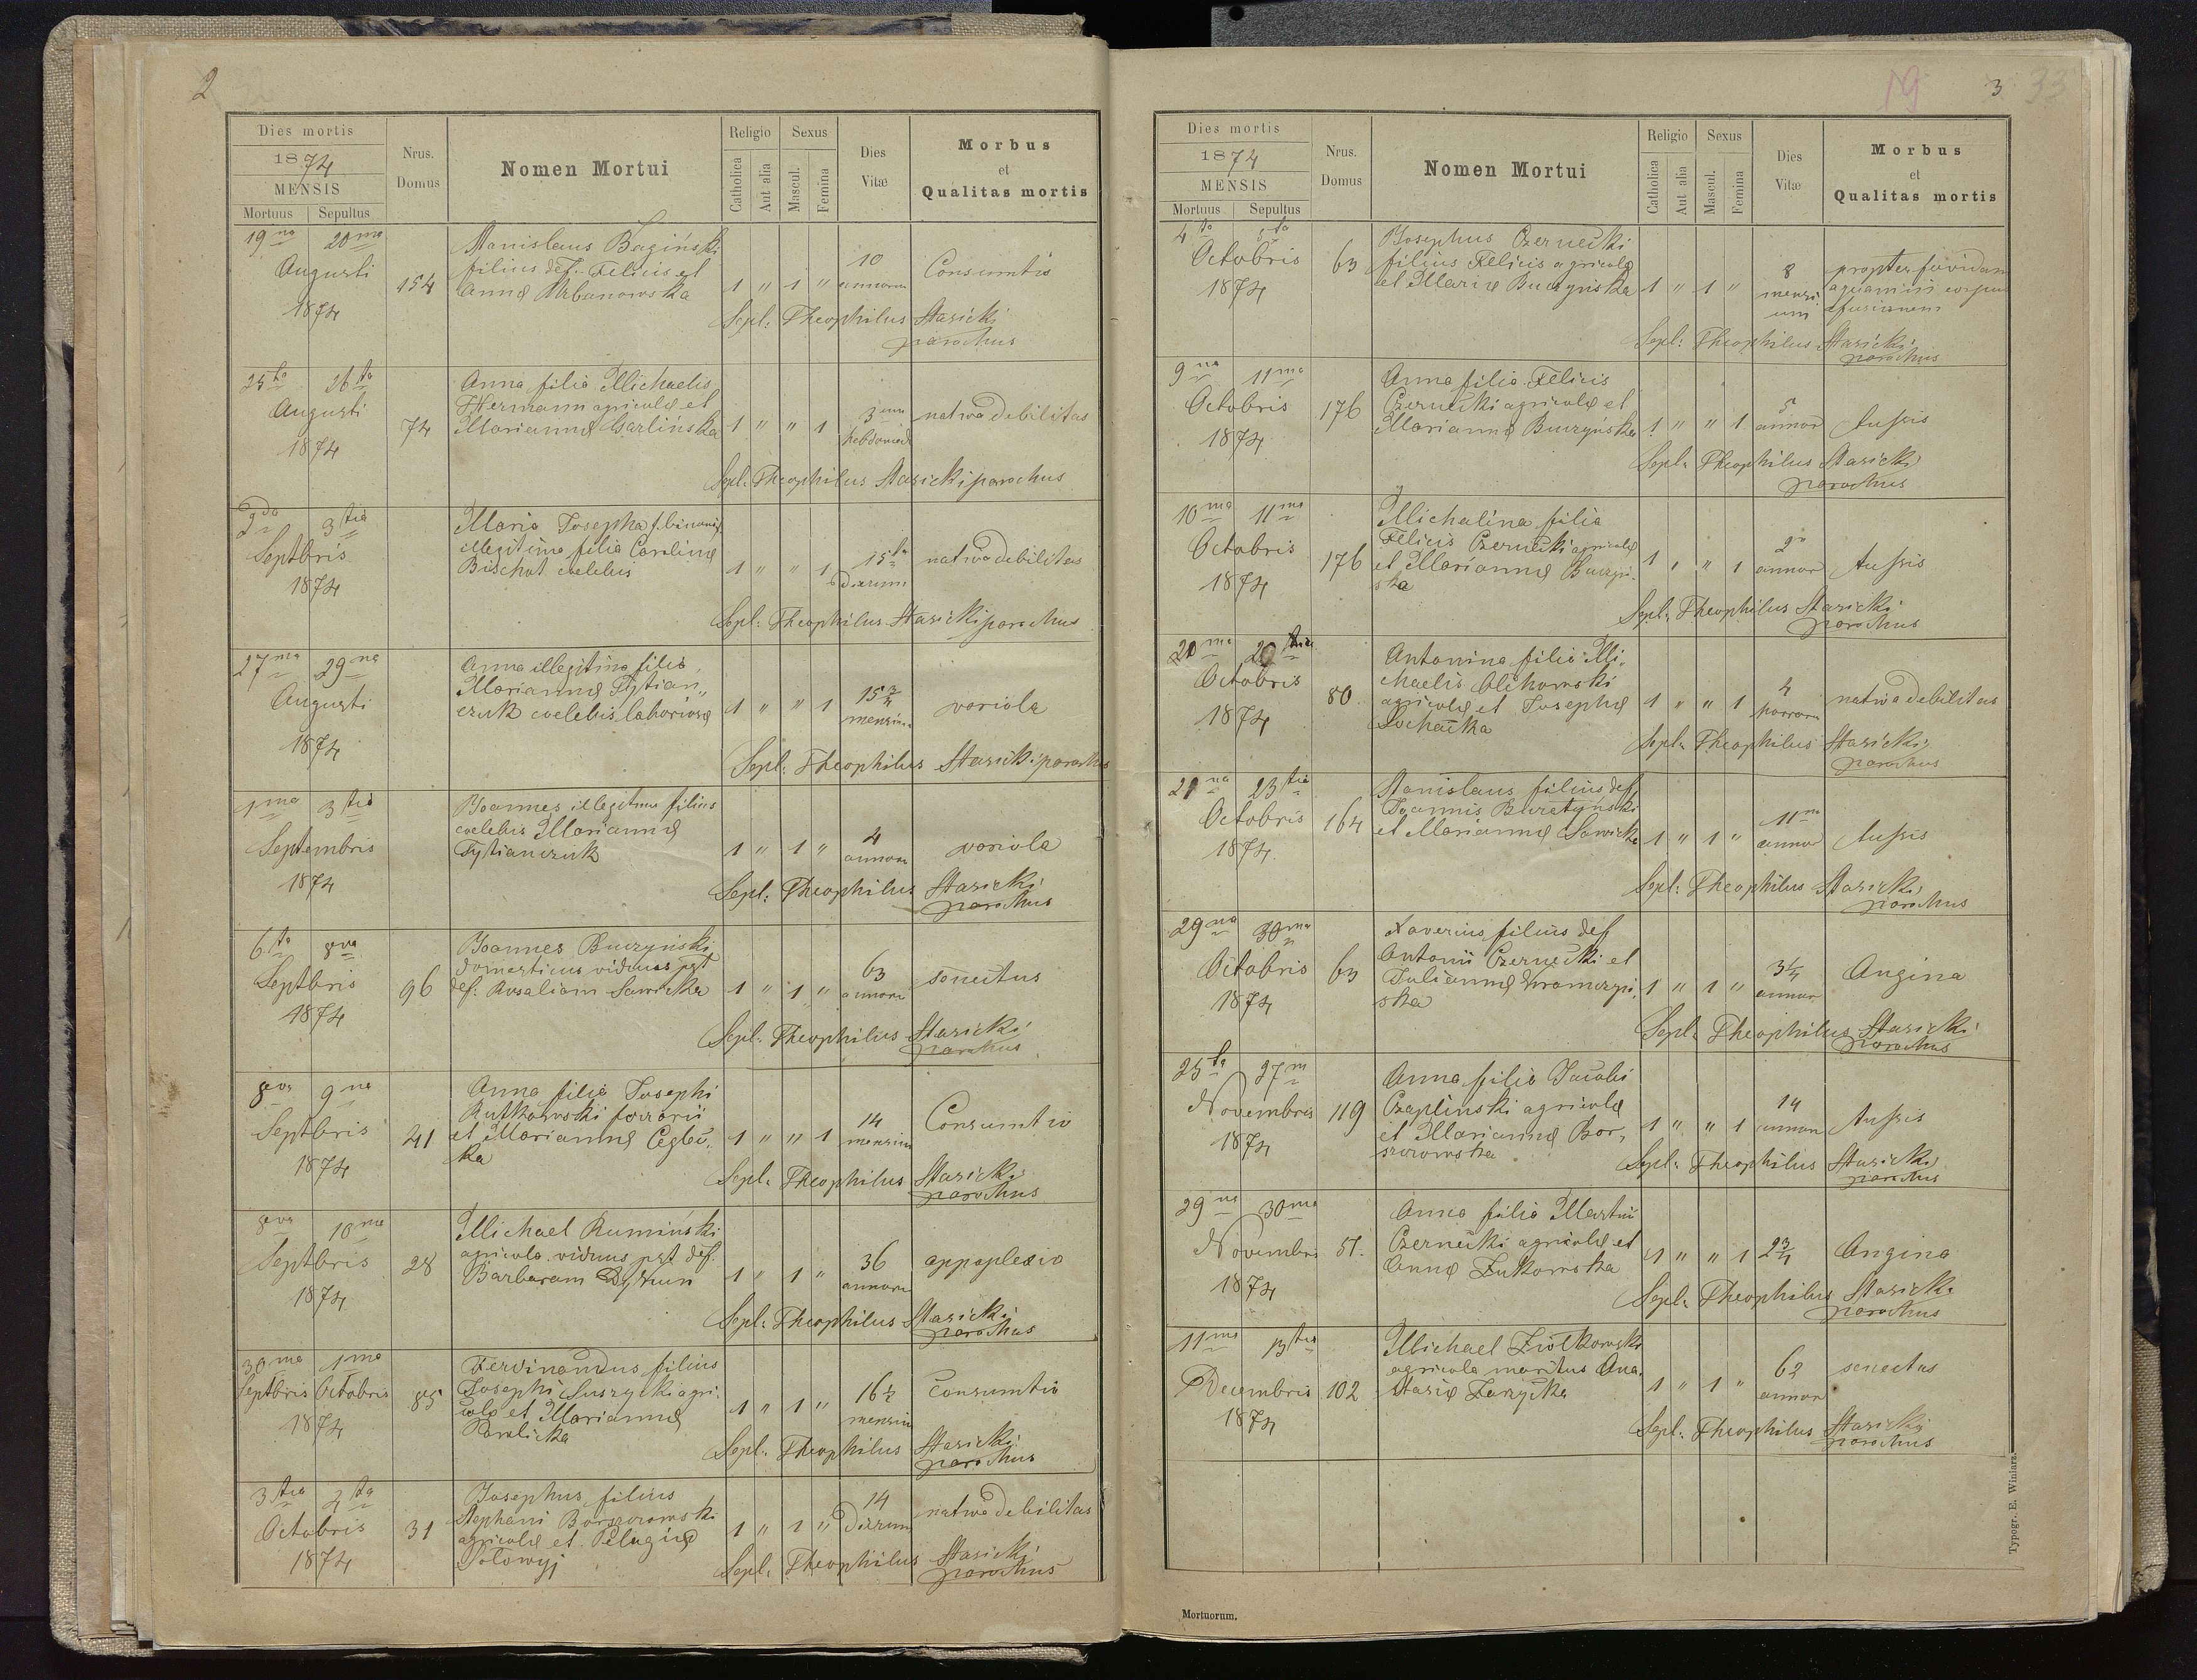 2
Dies mortis
1874
MENSIS
Mortuus Sepultus
Nrus. Domus
Nomen Mortui
Religio
Catholica
Aut alia
Sexus
Mascul.
Femina
Dies Vitæ
Morbus
et
Qualitas mortis
19na 20ma
Augusti
1874
154
Stanislaus Bagiński
filius def. Felicis et
Annæ Urbanowska
1 " 1 "
10
annorum
Consumtio
Sepl: Theophilus Stasicki
parochus
25ta 26ta
Augusti
1874
74
Anna filia Michaelis
Hermann agricolæ et
Mariannæ Garlińska
1 " " 1
3
hebdomad
nativa debilitas
Sepl: Theophilus Stasicki parochus
2da 3tia
Septbris
1874
Maria Josepha
illegitima filia Carolinæ
Bischot coelebis
1 " " 1
15ta
dierum
nativa debilitas
Sepl: Theophilus Stasicki parochus
27ma 29na
Augusti
1874
Anna illegitima filia
Mariannæ Tytian„
czuk coelebis laboriosæ
1 " " 1
15
mensium
variola
Sepl: Theophilus Stasicki parochus
1ma 3tia
Septembris
1874
Joannes illegitimus filius
coelebis Mariannæ
Tytianczuk
1 " 1 "
4
annoru
variola
Sepl: Theophilus Stasicki
parochus
6ta 8va
Septbris
1874
96
Joannes Buczyński
domesticus viduus pst
def. Rosaliam Sawicka
1 " 1 "
63
annoru
senectus
Sepl: Theophilus Stasicki
parochus
8va 9na
Septbris
1874
241
Anna filia Josephi
Rutkowski
et Mariannæ Ceglec„
ka
1 " " 1
14
mensium
Consumtio
Sepl: Theophilus Stasicki
parochus
8va 10ma
Septbris
1874
28
Michael Rumiński
agricola viduus pst def.
Barbaram Dyhun
1 " 1 "
36
annoru
appoplexio
Sepl: Theophilus Stasicki
parochus
30ma 1ma
Septbris Octobris
1874
85
Ferdinandus filius
Josephi Suszycki agri.
colæ et Mariannæ
Pawlicka
1 " 1 "
16½
mensiu
Consumtio
Sepl: Theophilus Stasicki
parochus
3tia 4ta
Octobris
1874
31
Josephus filius
Stephani Borszowski
agricolæ et Pelagiæ
Sołowyj
1 " 1 "
14
dierum
nativa debilitas
Sepl: Theophilus Stasicki
parochus
19 3 33
Dies mortis
1874
MENSIS
Mortuus Sepultus
Nrus. Domus
Nomen Mortui
Religio
Catholica
Aut alia
Sexus
Mascul.
Femina
Dies Vitæ
Morbus
et
Qualitas mortis
4ta 5ta
Octobris
1874
63
Josephus Czernecki
filius Felicis agricolæ
et Mariæ Buczyńska
1 " 1 "
8
mensi
um
propter fervidam
aquam in corpus
efusionem
Sepl: Theophilus Stasicki
parochus
9na 11ma
Octobris
1874
176
Anna filia Felicis
Czernecki agricolæ et
Mariannæ Buczyńska
1 " " 1
5
annor
tussis
Sepl: Theophilus Stasicki
parochus
10ma 11ma
Octobris
1874
176
Michalina filia
Felicis Czernecki agricolæ
et Mariannæ Buczyń.
ska
1 " " 1
2
annor
tussis
Sepl: Theophilus Stasicki
parochus
Octobris
1874
80
Antonina filia Mi.
chaelis Olchowski
agricolæ et Josephæ
Sochacka
1 " " 1
4
horaru
nativa debilitas
Sepl: Theophilus Stasicki
parochus
21na 23tia
Octobris
1874
164
Stanislaus filius def.
Joannis Buratyński
et Mariannæ Sawicka
1 " 1 "
11
annor
tussis
Sepl: Theophilus Stasicki
parochus
29na 30ma
Octobris
1874
63
Xaverius filius def
Antonii Czernecki et
Juliannæ
ska
1 " 1 "
3½
annor
Angina
Sepl: Theophilus Stasicki
parochus
25ta 27m
Novembris
1874
119
Anna filia Jacobi
Czaplinski agricolæ
et Mariannæ Bor„
szowska
1 " " 1
14
annor
tussis
Sepl: Theophilus Stasicki
parochus
29na 30ma
Novembri
1874
51.
Anna filia Martini
Czernecki agricolæ et
Annæ Żukowska
1 " " 1
2¾
Angina
Sepl: Theophilus Stasicki
parochus
11ma 13tia
Decembris
1874
102
Michael Ziołkowski
agricola maritus Ana.
stasiæ Zarzycka
1 " 1 "
62
annor
senectus
Sepl: Theophilus Stasicki
parochus
Mortuorum.
Typogr. E. Winiarz.